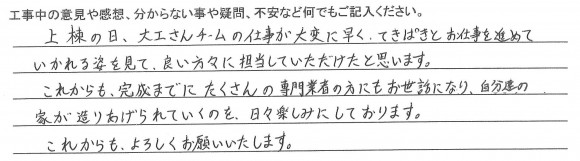 工事中の意見や感想、分からない事や疑問、不安など何でもご記入ください。
上棟の日、大工さんチームの仕事が大変に早く、てきぱきとお仕事を進めて
いかれる姿を見て、良い方々に担当していただけたと思います。
これからも、完成までにたくさんの専門業者の方にもお世話になり、自分達の
家が造りあげられていくのを、日々楽しみにしております。
これからも、よろしくお願いいたします。